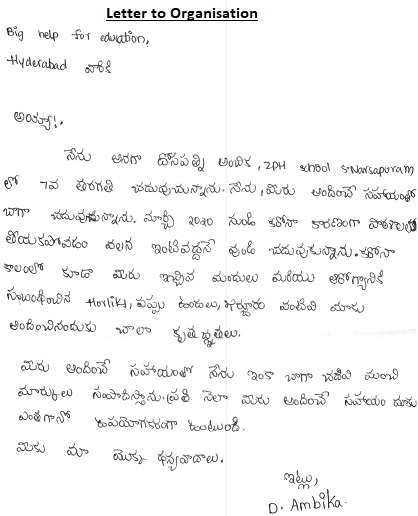 Letter to Organisation
Big help for education,
Hyderabad వారికి
అయ్యా!.
నేను అనగా దోసపత్ని అంబిక, ZPH School S.Narsapuram
లో 7వ తరగతి చదువుచున్నాను. నేను, మీరు అందించే సహాయంతో
బాగా చదువుతున్నాను. మార్చి 2020 నుండి కరోనా కారణంగా పాఠశాలలు
తీయకపోవడం వలన ఇంటివద్దనే వుండి చదువుకున్నాను. కరోనా
కాలంలో కూడా మీరు ఇచ్చిన మందులు మరియు ఆరోగ్యానికి
సంబంధించిన Horliks, పప్పు ఉండలు, ఖర్జూరం వంటివి మాకు
అందించినందుకు చాలా కృతజ్ఞతలు.
మీరు అందించే సహాయంతో నేను ఇంకా బాగా చదివి మంచి
మార్కులు సంపాదిస్తాను. ప్రతి నెలా మీరు అందించే సహాయం మాకు
ఎంతగానో ఉపయోగకరంగా ఉంటుంది.
మీకు మా యొక్క ధన్యవాదాలు.
ఇట్లు,
D. Ambika.